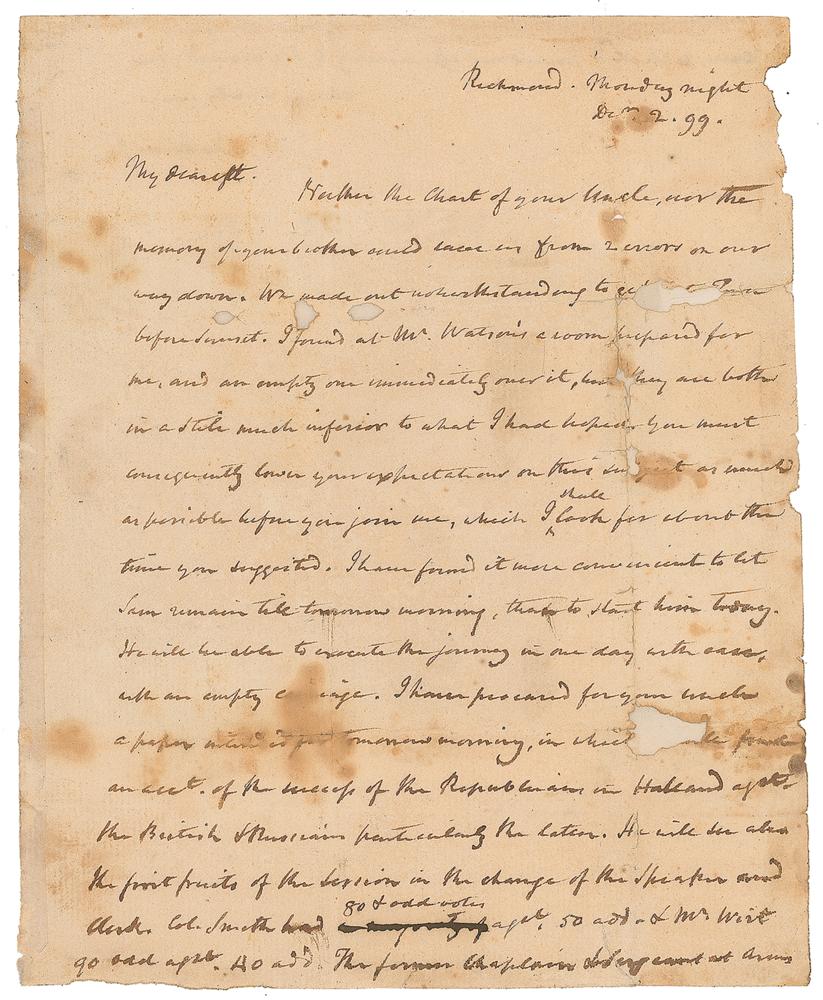 Richmond. Monday night
Decr. 2. 99.
My dearest.
Neither the Chart of your Uncle, nor the
memory of your brother could save us from 2 errors on our
way down. We made out notwithstanding to
before Sunset. I found at Mr. Watson's a room prepared for
me, and an empty one immediately over it, but they are both
in a stile much inferior to what I had hoped. You must
consequently lower your expectations on this subject as much
as possible before you join me, which I shall look for about the
time you suggested. I have found it more convenient to let
Sam remain till tomorrow morning, than to start him today.
He will be able to execute the journey in one day with ease,
with an empty carriage. I have procured for your uncle
a paper tomorrow morning, in which found
an acct. of the success of the Republicans in Holland agst.
the British & Russians particularly the latter. He will see also
the first fruits of the Session in the change of the Speaker and
Clerk. Col. Smith had 80 & odd votes agst. 50 add. & Mr. Wirt
90 odd agst. 40 add. The former Chaplain & Sergeant at Arms